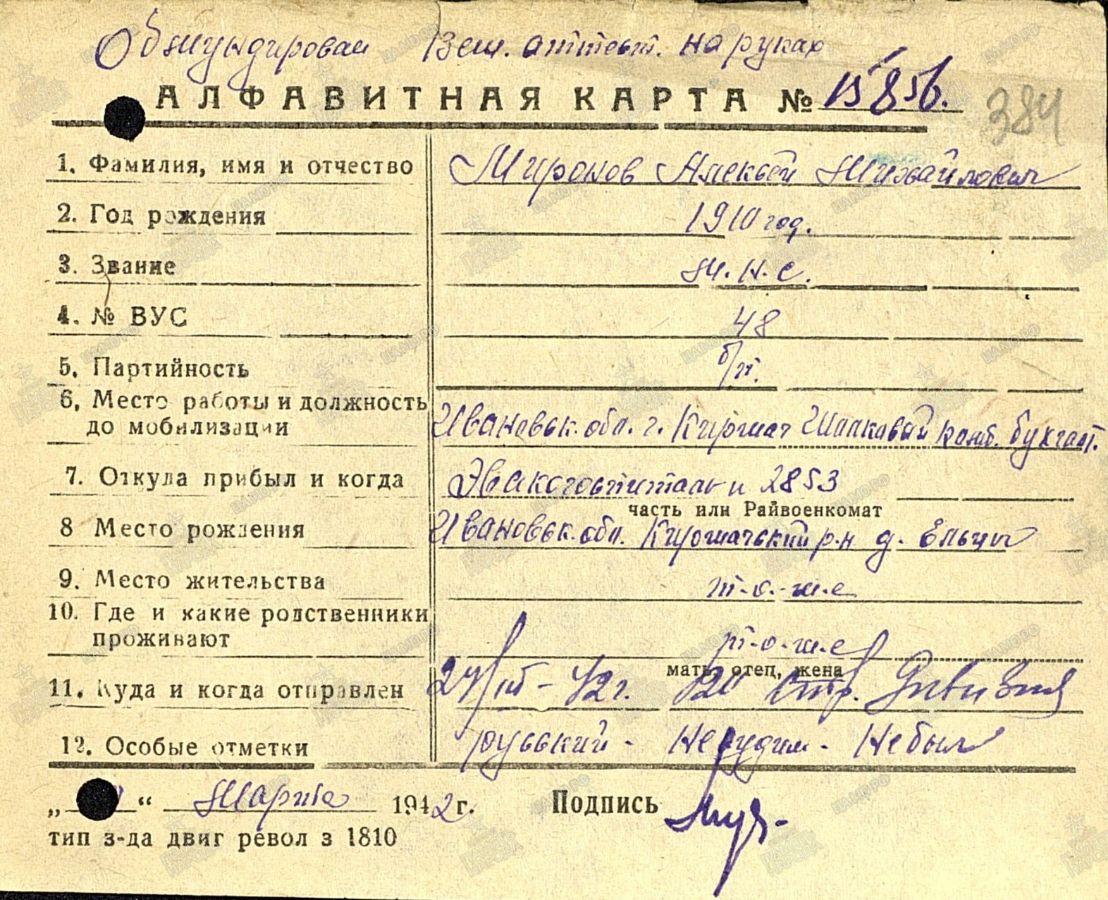 Обмундирован Вещ. аттест. на руках
АЛФАВИТНАЯ КАРТА № 15856.
384
1. Фамилия, имя и отчество Миронов Алексей Михайлович
2. Год рождения 1910 год.
3. Звание м.н.с.
4. № ВУС 48
5. Партийность б/п.
6. Место работы и должность Ивановск. обл. г. Киржач Шолковый комб. бухгалт.
до мобилизации
7. Откуда прибыл и когда Эвакогоспиталь 2853
часть или Райвоенкомат
8 Место рождения Ивановск. обл. Киржачский р-н д. Ельцы
9. Место жительства т-о-ж-е
10. Где и какие родственники
проживают т-о-ж-е
мать, отец, жена
11. Куда и когда отправлен 24/III-42г. 120 Стр. Дивизия
12. Особые отметки русский - Несудим - Не был
„ “ Марта 1942 г. Подпись
тип з-да двиг револ з 1810